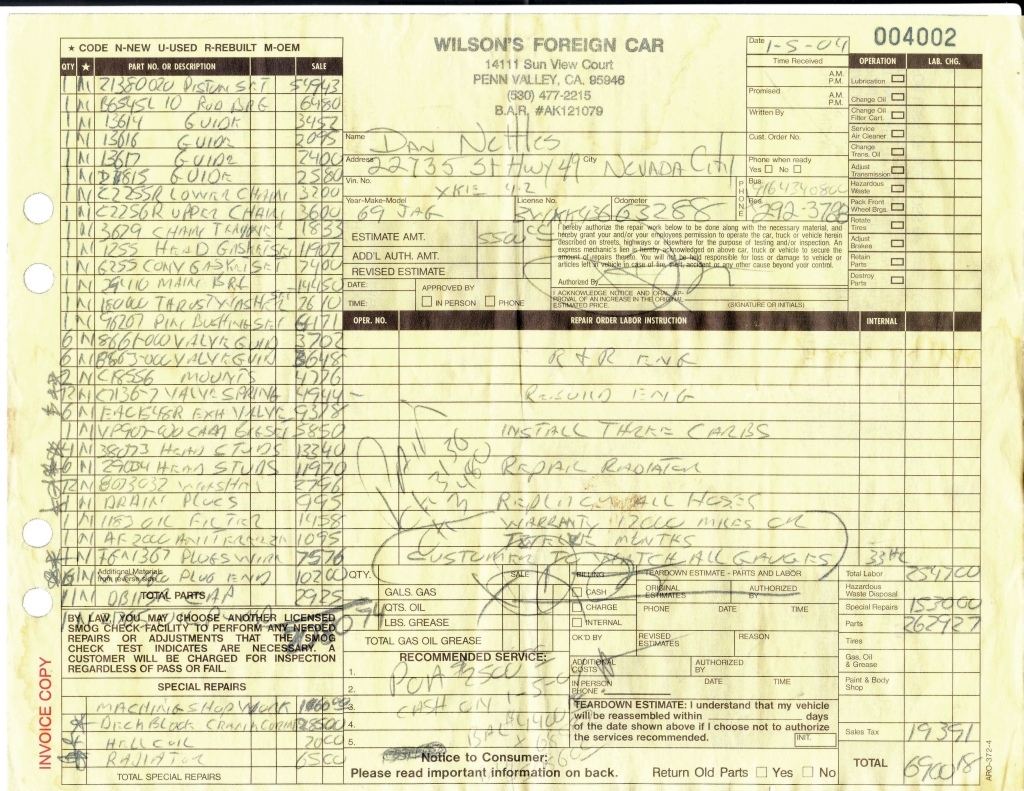 ★ CODE N-NEW U-USED R-REBUILT M-OEM
QTY ★ PART NO. OR DESCRIPTION SALE
1 N 21380020 PISTON SET 54943
1 N B6545L 10 ROD BRG 6480
1 N 13614 GUIDE 3452
1 N 13616 GUIDE 2095
1 N 13617 GUIDE 2400
1 N GUIDE 2580
1 N C2255R LOWER CHAIN 3200
1 N C2256R UPPER CHAIN 3600
1 N 3679 CHAIN 1833
1 N 1255 HEAD GASKET SET 11907
1 N 6255 CONV GASKET SET 7400
1 N MAIN BRG 14450
1 N 18000 THRUST WASH 2610
1 N 96207 PIN BUSHING SET 6171
6 N 8661-000 VALVE GUID 3702
6 N VALVE GUID 3648
2 N C18556 MOUNTS 4776
12 N C7136-7 VALVE SPRING 4944
6 N EXH VALVE 9378
1 N CAM 5850
N 38073 HEAD STUDS 13340
N 29034 HEAD STUDS 11970
12 N 8003032 WASHER 2796
N DRAIN PLUGS 995
1 N 1183 OIL FILTER 1458
1 N ANTIFREEZE 1095
N PLUG WIRE 7576
Additional Materials from reverse side
N PLUG END 10200
TOTAL PARTS
N CAP 2925
BY LAW, YOU MAY CHOOSE ANOTHER LICENSED
SMOG CHECK FACILITY TO PERFORM ANY NEEDED
REPAIRS OR ADJUSTMENTS THAT THE SMOG
CHECK TEST INDICATES ARE NECESSARY. A
CUSTOMER WILL BE CHARGED FOR INSPECTION
REGARDLESS OF PASS OR FAIL.
SPECIAL REPAIRS
MACHINE SHOP WORK
DECK BLOCK CRANK 28500
HELICOIL 2000
RADIATOR 6500
TOTAL SPECIAL REPAIRS
INVOICE COPY
WILSON'S FOREIGN CAR
14111 Sun View Court
PENN VALLEY, CA. 95946
(530) 477-2215
B.A.R. #AK121079
Name DAN NETTLES
Address 22735 ST HWY 49 City NEVADA CITY
Vin. No. XKE 4.2
Year-Make-Model 69 JAG License No. Odometer 63288
PHONE Bus. 9164340800
Res. 292-3788
ESTIMATE AMT. 5500
ADD'L AUTH. AMT.
REVISED ESTIMATE
DATE: APPROVED BY
TIME: IN PERSON PHONE
I hereby authorize the repair work below to be done along with the necessary material, and
hereby grant your and/or your employees permission to operate the car, truck or vehicle herein
described on streets, highways or elsewhere for the purpose of testing and/or inspection. An
express mechanic's lien is hereby acknowledged on above car, truck or vehicle to secure the
amount of repairs thereto. You will not be held responsible for loss or damage to vehicle or
articles left in vehicle in case of fire, theft, accident or any other cause beyond your control.
Authorized By
I ACKNOWLEDGE NOTICE AND ORAL AP-
PROVAL OF AN INCREASE IN THE ORIGINAL
ESTIMATED PRICE. (SIGNATURE OR INITIALS)
Date 1-5-04
Time Received
A.M.
P.M.
Promised A.M.
P.M.
Written By
Cust. Order No.
Phone when ready
Yes No
004002
OPERATION LAB. CHG.
Lubrication
Change Oil
Change Oil Filter Cart.
Service Air Cleaner
Change Trans. Oil
Adjust Transmission
Hazardous Waste
Pack Front Wheel Brgs.
Rotate Tires
Adjust Brakes
Retain Parts
Destroy Parts
OPER. NO. REPAIR ORDER LABOR INSTRUCTION INTERNAL
R & R ENG
REBUILD ENG
INSTALL THREE CARBS
REPAIR RADIATOR
REPLACE ALL HOSES
WARRANTY 12000 MILES OR
TWELVE MONTHS
CUSTOMER TO WATCH ALL GAUGES
PAID
QTY. SALE
GALS. GAS
QTS. OIL
LBS. GREASE
TOTAL GAS OIL GREASE
BILLING
CASH
CHARGE
INTERNAL
TEARDOWN ESTIMATE - PARTS AND LABOR
ORIGINAL ESTIMATES AUTHORIZED BY
PHONE DATE TIME
OK'D BY REVISED ESTIMATES REASON
ADDITIONAL COSTS AUTHORIZED BY
IN PERSON DATE TIME
PHONE #
RECOMMENDED SERVICE:
1.
2.
3. CASH ON 1-5-0
4.
5.
TEARDOWN ESTIMATE: I understand that my vehicle
will be reassembled within days
of the date shown above if I choose not to authorize
the services recommended.
INIT.
Notice to Consumer:
Please read important information on back.
Return Old Parts Yes No
Total Labor 254700
Hazardous Waste Disposal
Special Repairs 153000
Parts 262927
Tires
Gas, Oil & Grease
Paint & Body Shop
Sales Tax 19391
TOTAL 690018
ARO-372-4